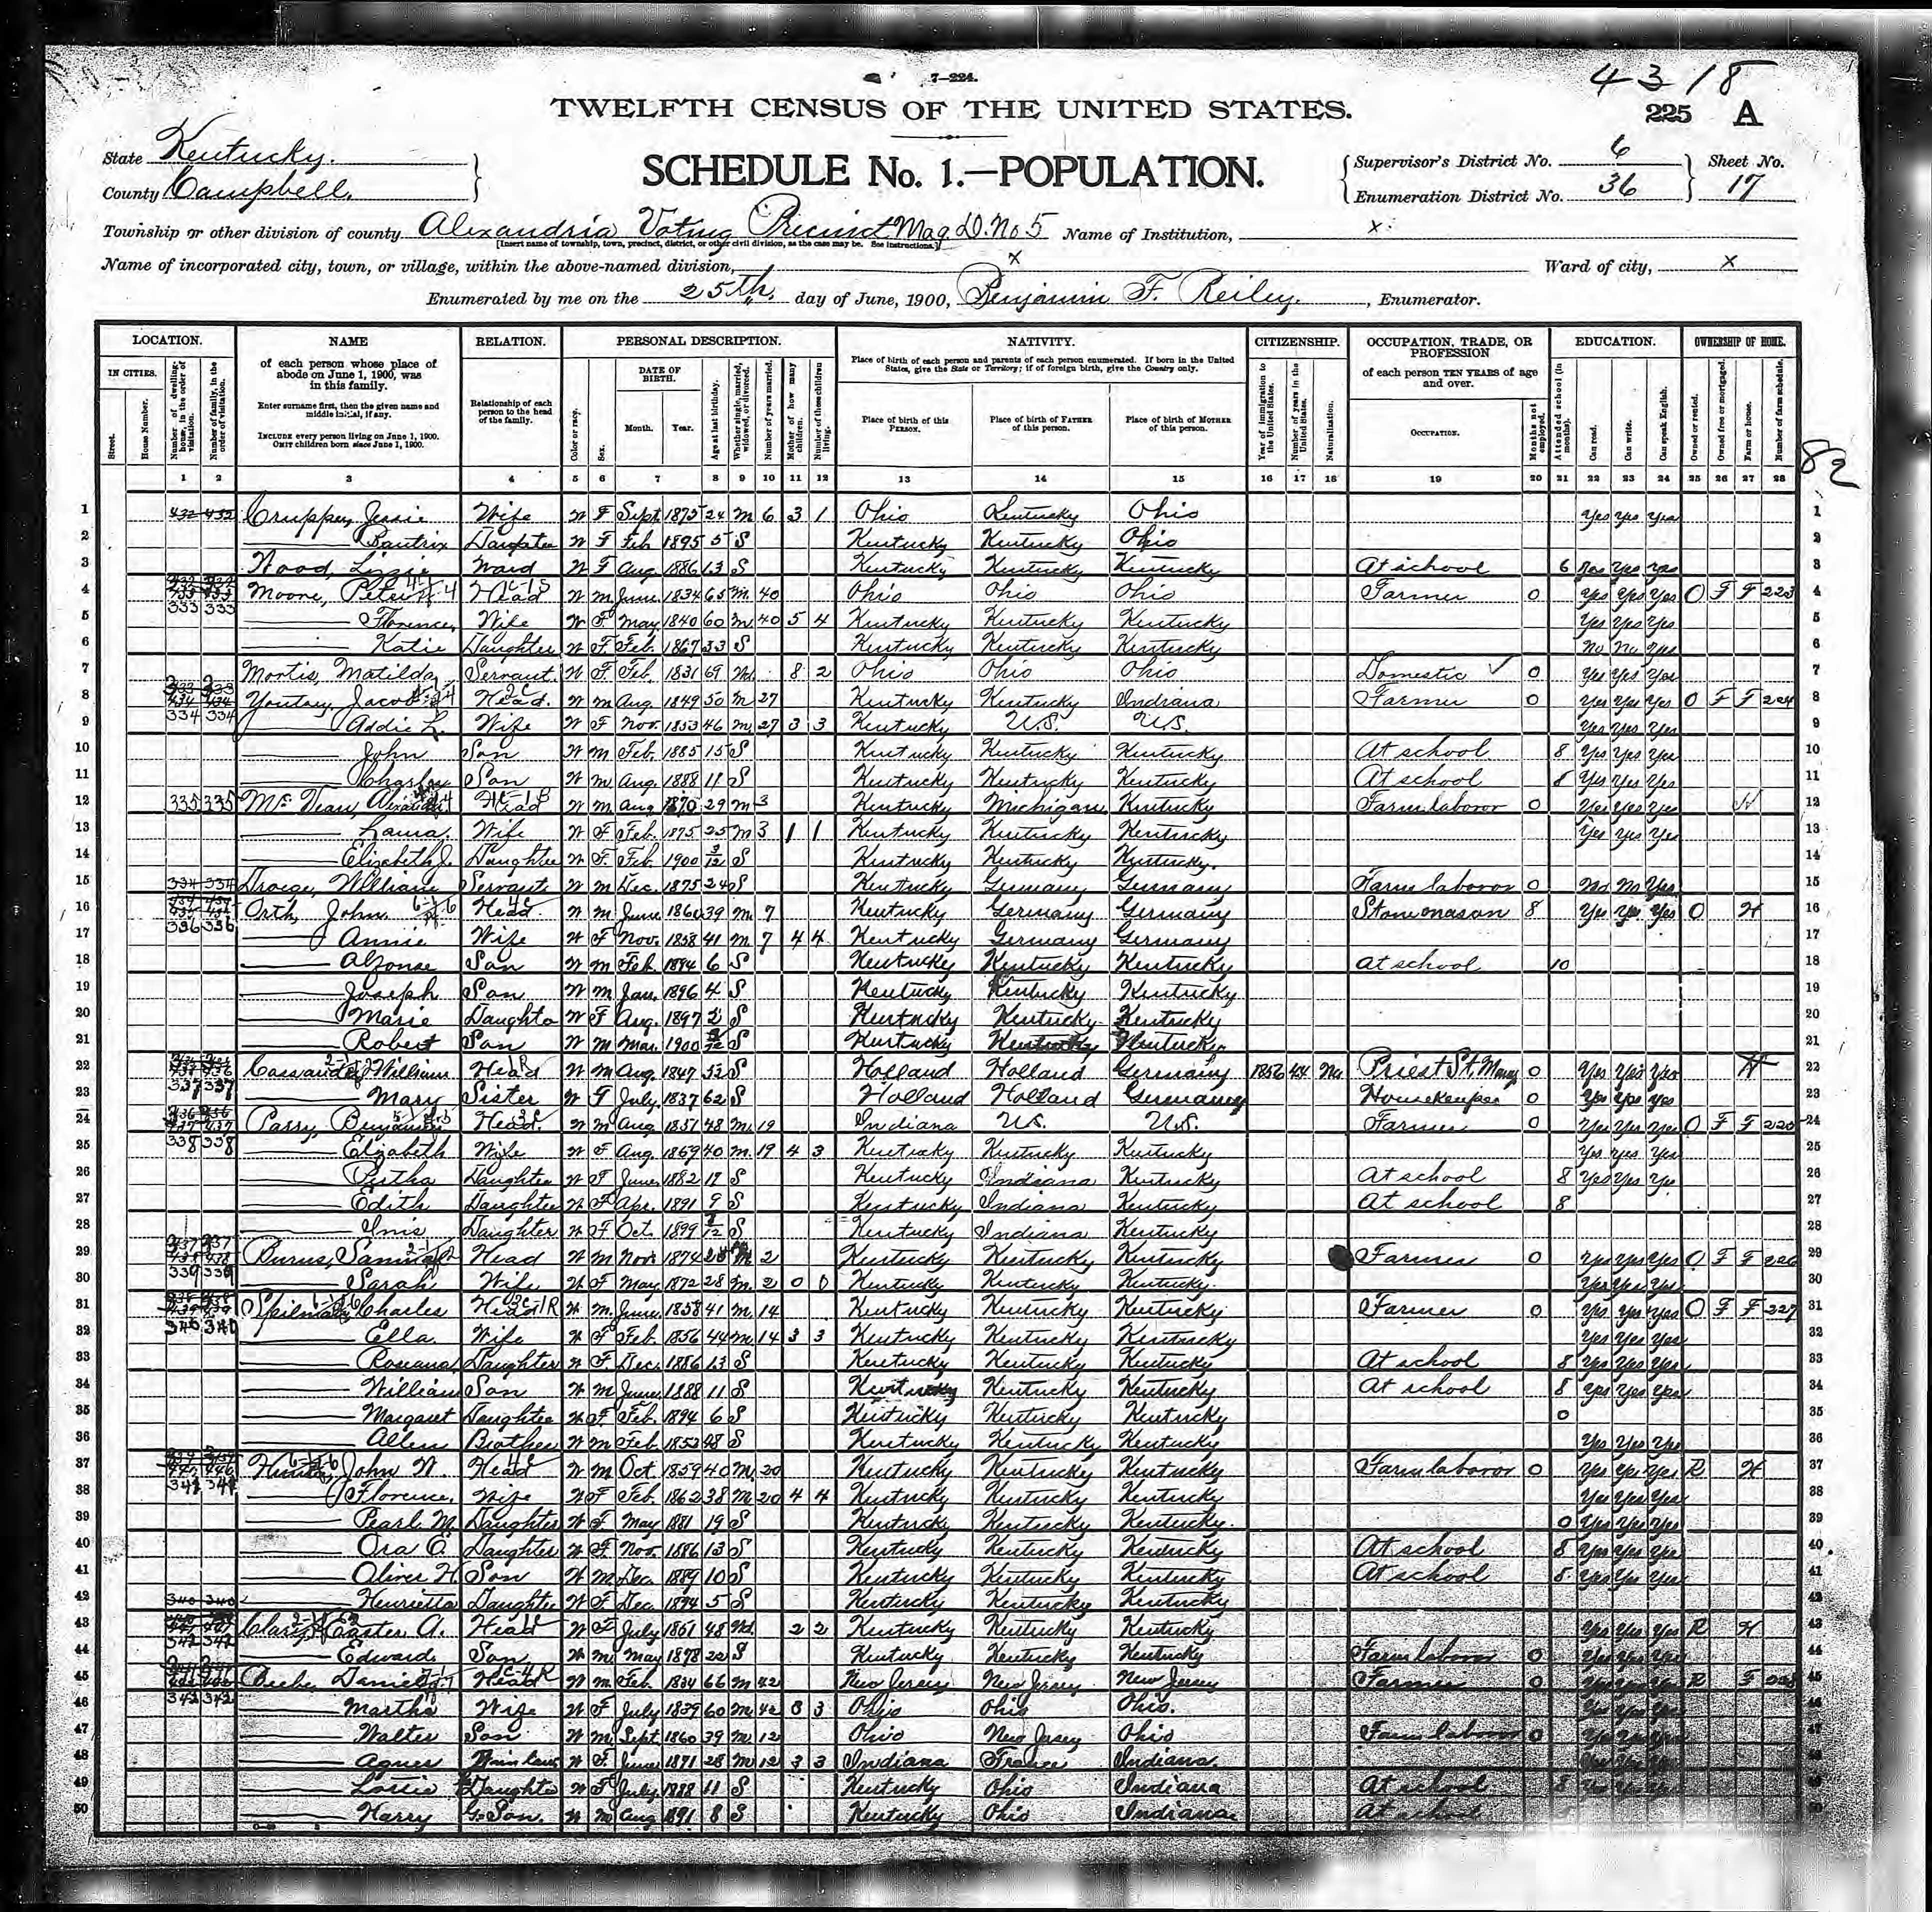 7-224.
43 18
TWELFTH CENSUS OF THE UNITED STATES.
225 A
State Kentucky.
County Campbell,
SCHEDULE No. 1.—POPULATION.
Supervisor's District No. 6
Enumeration District No. 36
Sheet No.
17
Township or other division of county Alexandria Voting Precinct Mag D. No 5 Name of Institution, x
[Insert name of township, town, precinct, district, or other civil division, as the case may be. See instructions.]
Name of incorporated city, town, or village, within the above-named division, x Ward of city, x
Enumerated by me on the 25th day of June, 1900, Benjamin F. Reiley, Enumerator.
LOCATION. NAME RELATION. PERSONAL DESCRIPTION. NATIVITY. CITIZENSHIP. OCCUPATION, TRADE, OR PROFESSION EDUCATION. OWNERSHIP OF HOME.
IN CITIES.
Street.
House Number.
Number of dwelling-house, in the order of visitation.
Number of family, in the order of visitation.
of each person whose place of abode on June 1, 1900, was in this family.
Enter surname first, then the given name and middle initial, if any.
INCLUDE every person living on June 1, 1900.
OMIT children born since June 1, 1900.
Relationship of each person to the head of the family.
Color or race.
Sex.
DATE OF BIRTH.
Month. Year.
Age at last birthday.
Whether single, married, widowed, or divorced.
Number of years married.
Mother of how many children.
Number of these children living.
Place of birth of each person and parents of each person enumerated. If born in the United States, give the State or Territory; if of foreign birth, give the Country only.
Place of birth of this PERSON.
Place of birth of FATHER of this person.
Place of birth of MOTHER of this person.
Year of immigration to the United States.
Number of years in the United States.
Naturalization.
of each person TEN YEARS of age and over.
OCCUPATION.
Months not employed.
Attended school (in months).
Can read.
Can write.
Can speak English.
Owned or rented.
Owned free or mortgaged.
Farm or house.
Number of farm schedule.
82
1 2 3 4 5 6 7 8 9 10 11 12 13 14 15 16 17 18 19 20 21 22 23 24 25 26 27 28
1 Jessie Wife W F Sept 1875 24 M 6 3 1 Ohio Kentucky Ohio Yes Yes Yes 1
2 Daughter W F Feb 1895 5 S Kentucky Kentucky Ohio 2
3 Ward W F Aug 1886 13 S Kentucky Kentucky Kentucky At school 6 Yes Yes Yes 3
4 333 333 Moore, Peter Head W m June 1834 65 M 40 Ohio Ohio Ohio Farmer 0 Yes Yes Yes O F F 223 4
5 Florence, Wife W F May 1840 60 M 40 5 4 Kentucky Kentucky Kentucky Yes Yes Yes 5
6 Katie Daughter W F Feb. 1867 33 S Kentucky Kentucky Kentucky No No Yes 6
7 Matilda Servant W F Feb. 1831 69 Wd. 8 2 Ohio Ohio Ohio Domestic 0 Yes Yes Yes 7
8 334 334 Jacob Head. W m Aug. 1849 50 M 27 Kentucky Kentucky Indiana Farmer 0 Yes Yes Yes O F F 224 8
9 Addie L. Wife W F Nov. 1853 46 M 27 3 3 Kentucky U.S. U.S. Yes Yes Yes 9
10 John Son W m Feb. 1885 15 S Kentucky Kentucky Kentucky At school 8 Yes Yes Yes 10
11 Charley Son W m Aug. 1888 11 S Kentucky Kentucky Kentucky At school 8 Yes Yes Yes 11
12 335 335 Head W m Aug 1870 29 M 3 Kentucky Michigan Kentucky Farm laboror 0 Yes Yes Yes 12
13 Laura. Wife W F Feb. 1875 25 M 3 1 1 Kentucky Kentucky Kentucky Yes Yes Yes 13
14 Elizabeth J. Daughter W F. Feb. 1900 3/12 S Kentucky Kentucky Kentucky. 14
15 334 334 Droege, William Servant W m Dec. 1875 24 S Kentucky Germany Germany Farm laboror 0 No No Yes 15
16 336 336 Orth, John Head W m June 1860 39 M 7 Kentucky Germany Germany Stonemason 8 Yes Yes Yes O H 16
17 Annie Wife W F Nov. 1858 41 M 7 4 4 Kentucky Germany Germany 17
18 Alzonse Son W m Feb. 1894 6 S Kentucky Kentucky Kentucky At school 10 18
19 Joseph Son W m Jan. 1896 4 S Kentucky Kentucky Kentucky 19
20 Marie Daughter W F Aug. 1897 2 S Kentucky Kentucky Kentucky 20
21 Robert Son W m Mar. 1900 S Kentucky Kentucky Kentucky 21
22 337 337 William Head W m Aug. 1847 52 S Holland Holland Germany 1856 44 Na Priest St. Marys 0 Yes Yes Yes H 22
23 Mary Sister W F July 1837 62 S Holland Holland Germany Housekeeper 0 Yes Yes Yes 23
24 338 338 Parry, Benjamin Head. W m Aug 1851 48 M 19 Indiana U.S. U.S. Farmer 0 Yes Yes Yes O F F 24
25 Elizabeth Wife W F Aug. 1859 40 M. 19 4 3 Kentucky Kentucky Kentucky Yes Yes Yes 25
26 Daughter W F June 1882 17 S Kentucky Indiana Kentucky At school 8 Yes Yes Yes 26
27 Edith Daughter W F Apr. 1891 9 S Kentucky Indiana Kentucky At school 8 27
28 Inis Daughter W F Oct. 1899 S Kentucky Indiana Kentucky 28
29 339 339 Burns, Head W m Nov. 1874 25 M 2 Kentucky Kentucky Kentucky Farmer 0 Yes Yes Yes O F F 226 29
30 Sarah Wife W F May 1872 28 M. 2 0 0 Kentucky Kentucky Kentucky Yes Yes Yes 30
31 340 340 Spilman, Charles Head W m June 1858 41 M. 14 Kentucky Kentucky Kentucky Farmer 0 Yes Yes Yes O F F 227 31
32 Ella Wife W F Feb. 1856 44 M 14 3 3 Kentucky Kentucky Kentucky Yes Yes Yes 32
33 Roseana Daughter W F Dec. 1886 13 S Kentucky Kentucky Kentucky At school 8 Yes Yes Yes 33
34 William Son W m June 1888 11 S Kentucky Kentucky Kentucky At school 8 Yes Yes Yes 34
35 Margaret Daughter W F Feb. 1894 6 S Kentucky Kentucky Kentucky 0 35
36 Allen Brother W m Feb. 1852 48 S Kentucky Kentucky Kentucky Yes Yes Yes 36
37 341 341 John W. Head W m Oct 1859 40 M. 20 Kentucky Kentucky Kentucky Farm laboror 0 Yes Yes Yes R H 37
38 Florence, Wife W F Feb. 1862 38 M 20 4 4 Kentucky Kentucky Kentucky Yes Yes Yes 38
39 Pearl M Daughter W F. May 1881 19 S Kentucky Kentucky Kentucky. 0 Yes Yes Yes 39
40 Ora O. Daughter W F Nov. 1886 13 S Kentucky Kentucky Kentucky At school 8 Yes Yes Yes 40
41 Oliver H Son W m Dec. 1889 10 S Kentucky Kentucky Kentucky At school 8 Yes Yes Yes 41
42 340 340 Henrietta Daughter W F Dec. 1894 5 S Kentucky Kentucky Kentucky 42
43 Easter A. Head W F July 1851 48 Wd. 2 2 Kentucky Kentucky Kentucky Yes Yes Yes R H 43
44 Edward Son W m May 1878 22 S Kentucky Kentucky Kentucky Farm laboror 0 Yes Yes Yes 44
45 342 342 Daniel Head W m Feb. 1834 66 M 42 New Jersey New Jersey New Jersey Farmer 0 Yes Yes Yes R F 228 45
46 Martha Wife W F July 1839 60 M. 42 8 3 Ohio Ohio Ohio. Yes Yes Yes 46
47 Walter Son W m Sept 1860 39 M. 12 Ohio New Jersey Ohio Farm laboror 0 Yes Yes Yes 47
48 Agnes W F. June 1871 28 M 12 3 3 Indiana France Indiana. 48
49 Daughter W F July 1888 11 S Kentucky Ohio Indiana At school 8 49
50 Harry G. Son. W m Aug 1891 8 S Kentucky Ohio Indiana At school 50